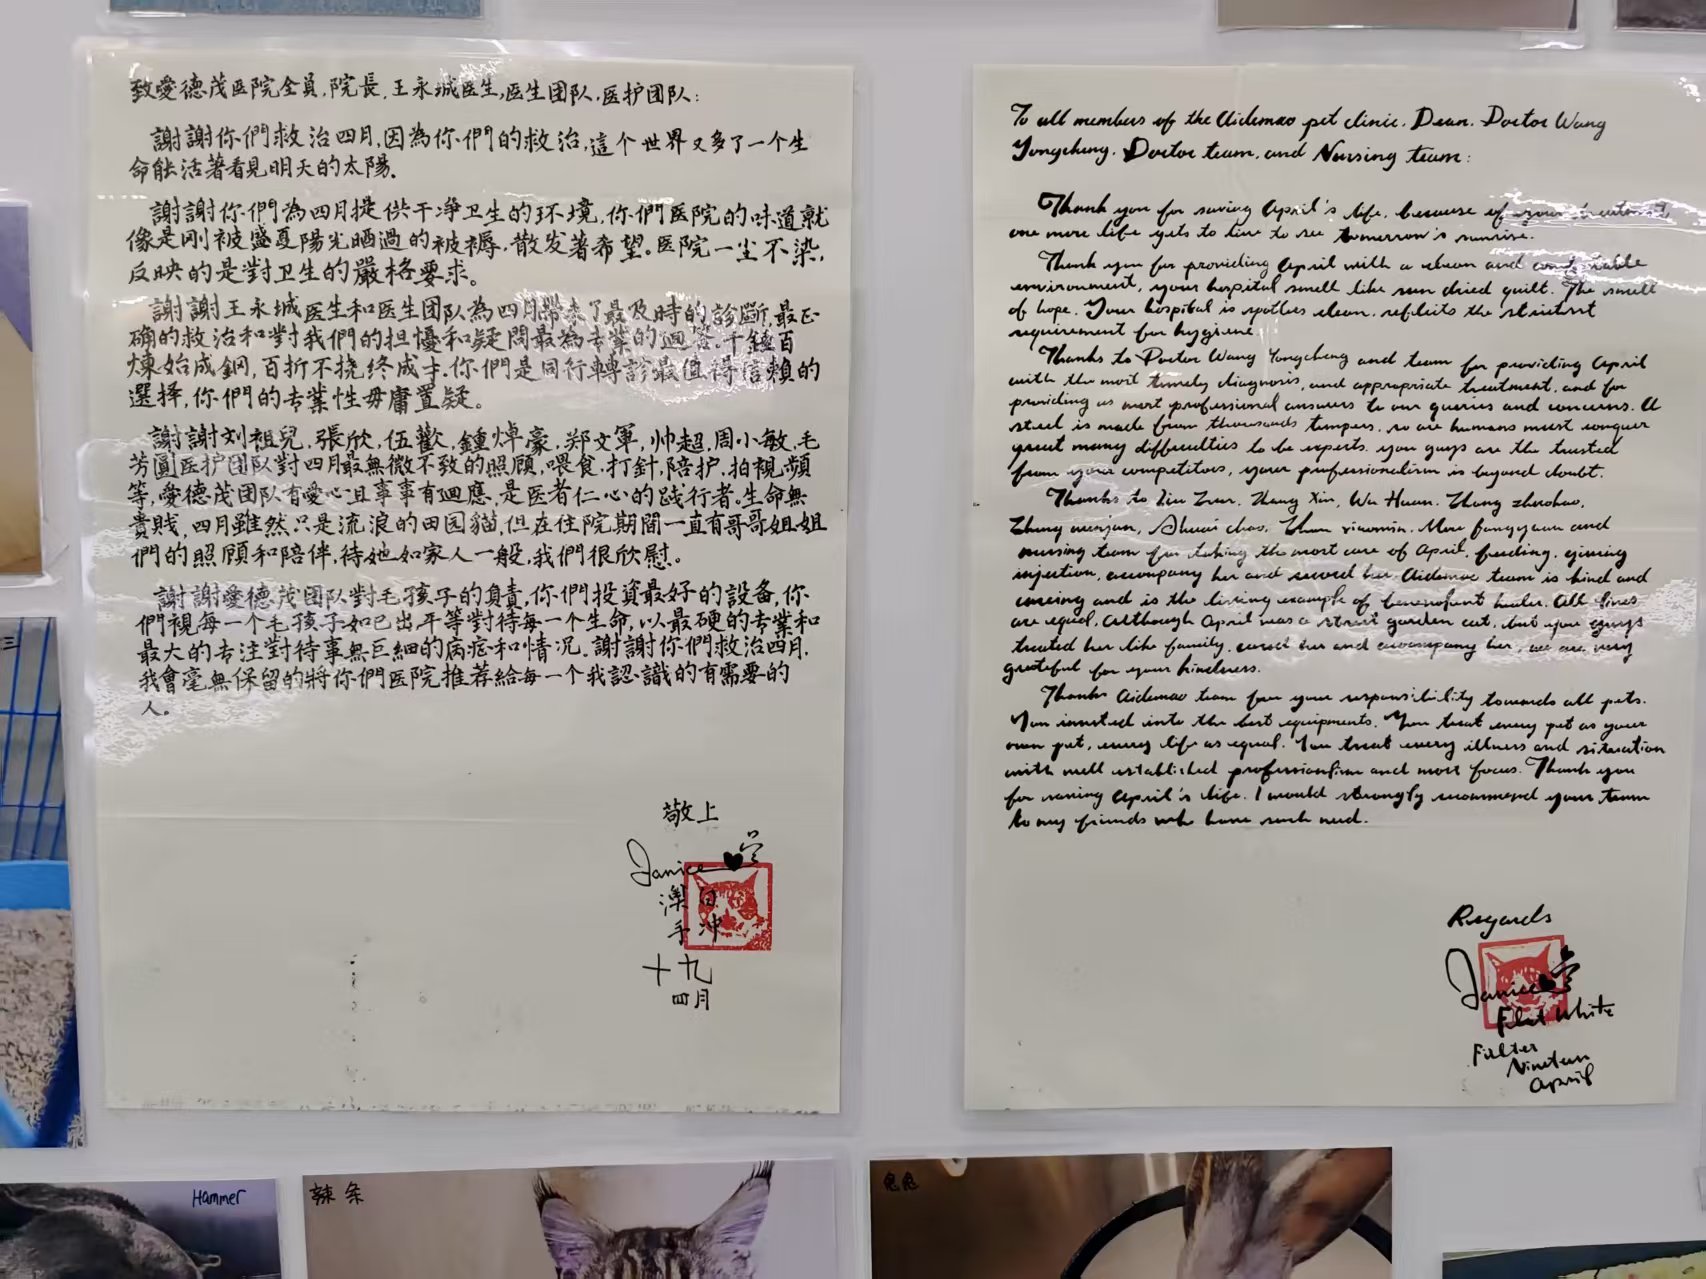 致愛德茂医院全員,院長,王永城医生,医生团队,医护团队:
謝謝你們救治四月,因為你們的救治,這个世界又多了一个生
命能活著看見明天的太陽.
謝謝你們為四月提供干净卫生的环境,你們医院的味道就
像是刚被盛夏陽光晒過的被褥,散发著希望。医院一尘不染,
反映的是對卫生的嚴格要求。
謝謝王永城医生和医生团队為四月帶来了最及時的診斷,最正
确的救治和對我們的担憂和疑問最為专業的迴答.千錘百
煉始成鋼,百折不挠终成才.你們是同行轉診最值得信賴的
選择,你們的专業性毋庸置疑。
謝謝刘祖兒,張欣,伍歡,鍾焯豪,郑文軍,帅超,周小敏,毛
芳圓医护团队對四月最無微不致的照顧,喂食,打針,陪护,拍視頻
等,愛德茂团队有愛心且事事有迴應,是医者仁心的践行者。生命無
貴賎,四月雖然只是流浪的田园貓,但在住院期間一直有哥哥姐姐
們的照顧和陪伴,待她如家人一般,我們很欣慰。
謝謝愛德茂团队對毛孩子的負責,你們投資最好的設备,你
們視每一个毛孩子如已出,平等對待每一个生命,以最硬的专業和
最大的专注對待事無巨細的病症和情况。謝謝你們救治四月,
我會毫無保留的將你們医院推荐給每一个我認識的有需要的
人。
敬上
Janice
澳白
手冲
十九
四月
To all members of the Aidemao pet clinic. Dean. Doctor Wang
Yongcheng. Doctor team, and Nursing team:
Thank you for saving April's life, because of your treatment
one more life gets to live to see tomorrow's sunrise.
Thank you for providing April with a clean and comfortable
environment, your hospital smell like sun dried quilt. The smell
of hope. Your hospital is spotless clean, reflects the strictest
requirement for hygiene.
Thanks to Doctor Wang Yongcheng and team for providing April
with the most timely diagnosis, and appropriate treatment, and for
providing us most professional answers to our queries and concerns. A
steel is made from thousands tempers, so are humans must conquer
great many difficulties to be experts. you guys are the trusted
from your competitors, your professionalism is beyond doubt.
Thanks to Liu Zuer, Zhang Xin, Wu Huan, Zhong zhuohao,
Zheng wenjun, Shuai chao, Zhou xiaomin, Mao fangyuan and
nursing team for taking the most care of April, feeding, giving
injection, accompany her and record her. Aidemao team is kind and
caring and is the living example of benevolent healer. All lives
are equal, although April was a stray garden cat, but you guys
treated her like family, cared her and accompany her, we are very
grateful for your kindness.
Thanks Aidemao team for your responsibility towards all pets.
You invested into the best equipments. You treat every pet as your
own pet, every life as equal. You treat every illness and situation
with well established professionalism and most focus. Thank you
for saving April's life. I would strongly recommend your team
to my friends who have such need.
Regards
Janice
Flat White
Filter
Nineteen
April
三
Hammer
辣条
兔兔